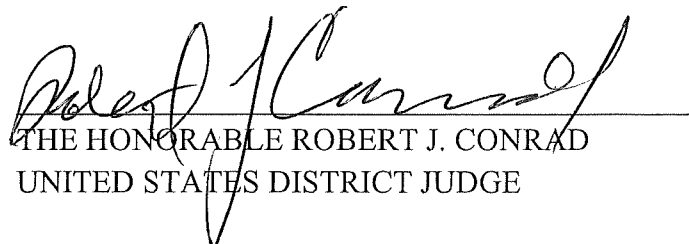 Robert J Conrad
THE HONORABLE ROBERT J. CONRAD
UNITED STATES DISTRICT JUDGE